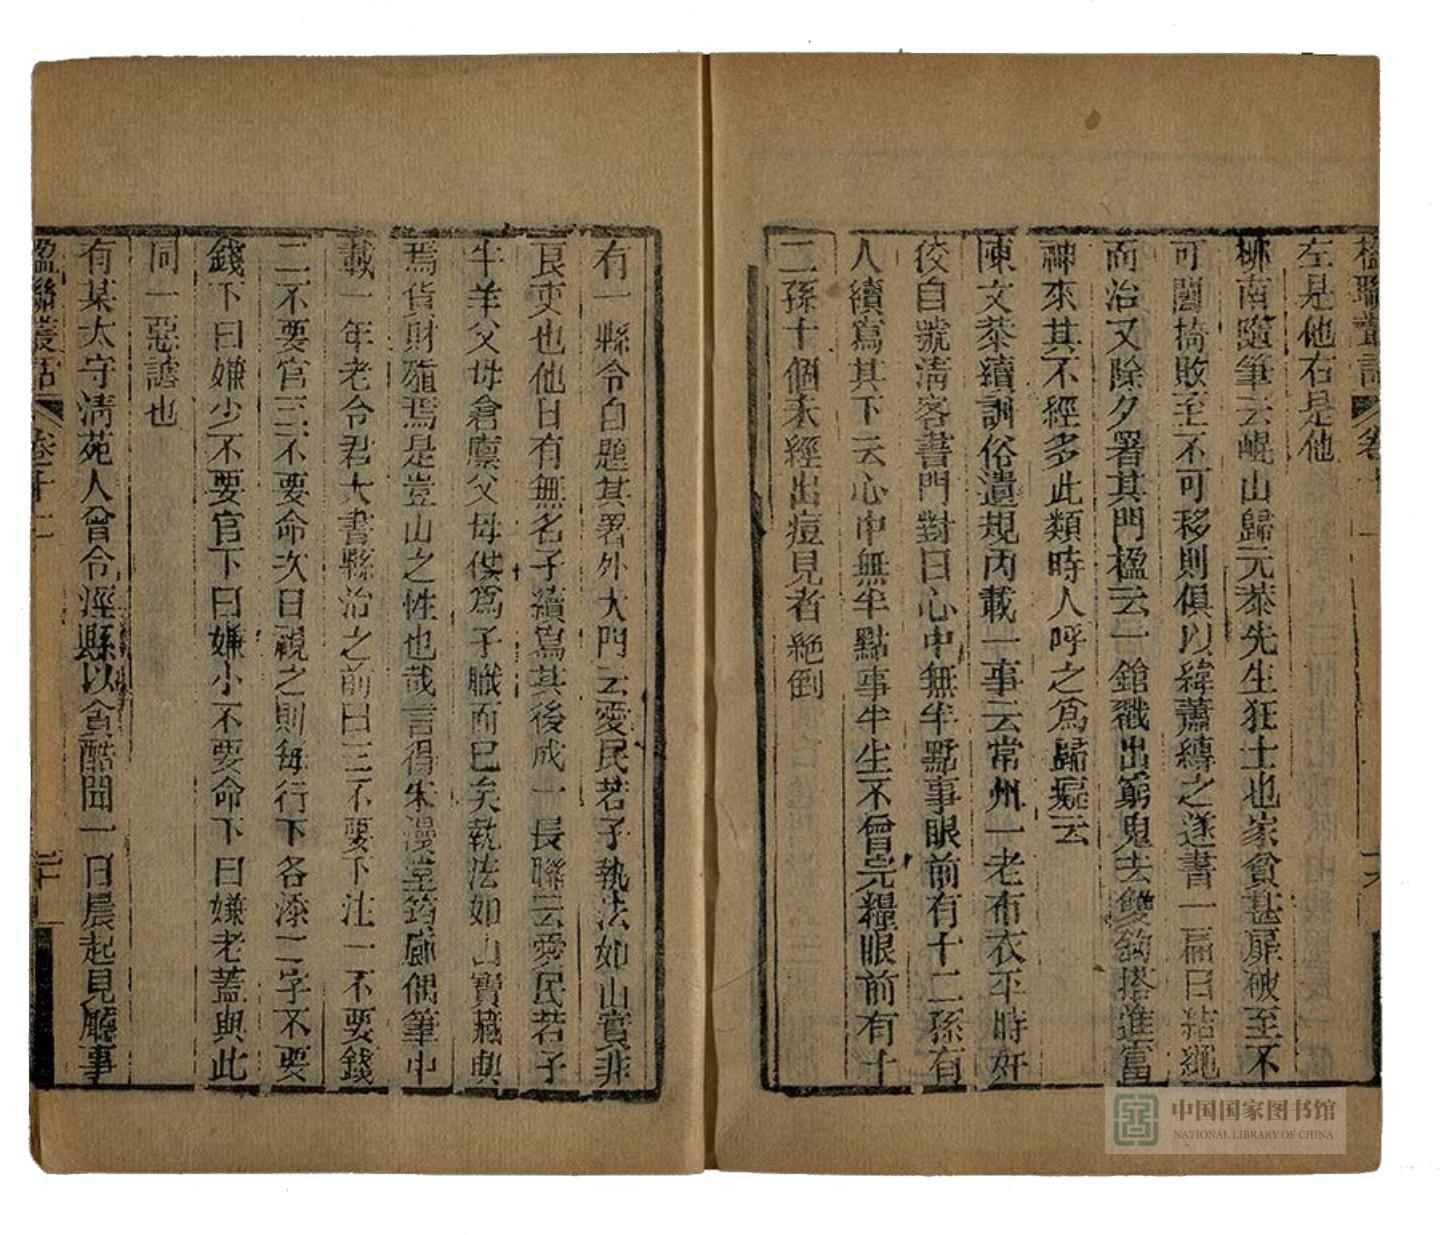 楹聯叢話 卷十
左是他右是他
柳南隨筆云崐山歸元恭先生狂士也家貧甚扉破至不
可闔椅敗至不可移則俱以緯蕭縛之遂書一扁曰結繩
而治又除夕署其門楹云一鎗戳出窮鬼去雙鉤搭進富
神來其不經多此類時人呼之爲歸癡云
陳文恭續訓俗遺規內載一事云常州一老布衣平時奸
佼自號清客書門對曰心中無半點事眼前有十二孫有
人續寫其下云心中無半點事半生不曾完糧眼前有十
二孫十個未經出痘見者絕倒
有一縣令自題其署外大門云愛民若子執法如山實非
良吏也他日有無名子續寫其後成一長聯云愛民若子
牛羊父母倉廩父母供爲子職而已矣執法如山寶藏興
焉貨財殖焉是豈山之性也哉言得朱漫堂筠廊偶筆中
載一年老令君大書縣治之前曰三不要下注一不要錢
二不要官三不要命次日視之則每行下各添二字不要
錢下曰嫌少不要官下曰嫌小不要命下曰嫌老蓋與此
同一惡謔也
有某太守清苑人曾令涇縣以貪酷聞一日晨起見廳事
楹聯叢話 卷十二 二十
中国国家图书馆
NATIONAL LIBRARY OF CHINA